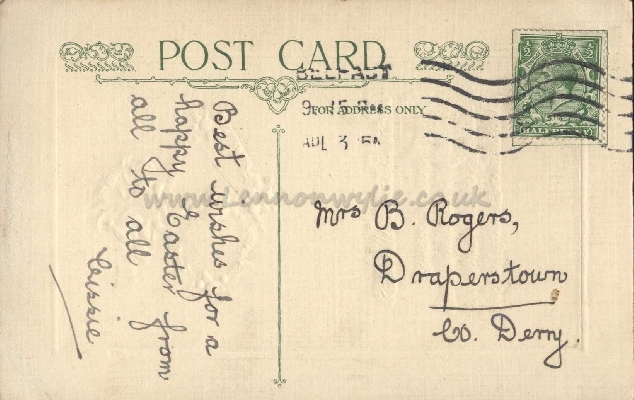 POST CARD
BELFAST
FOR ADDRESS ONLY
HALFPENNY
Best wishes for a
happy Easter from
all to all
Cissie
Mrs B. Rogers,
Draperstown
Co. Derry.
www.Lennonwylie.co.uk